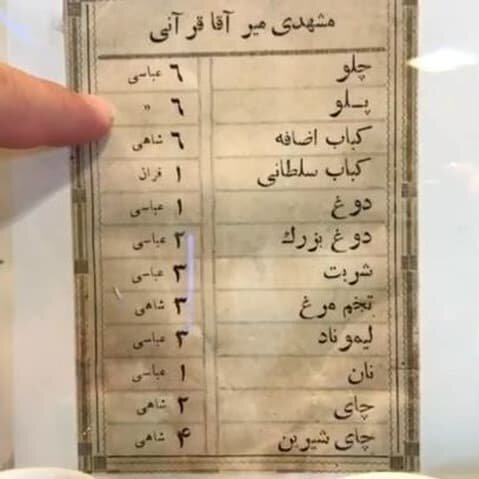 مشهدی میر آقا قرآنی
چلو ۶ عباسی
پلو ۶ "
کباب اضافه ۶ شاهی
کباب سلطانی ۱ قران
دوغ ۱ عباسی
دوغ بزرك ۲ عباسی
شربت ۳ عباسی
تخم مرغ ۳ شاهی
لیموناد ۳ عباسی
نان ۱ عباسی
چای ۲ شاهی
چای شیرین ۴ شاهی